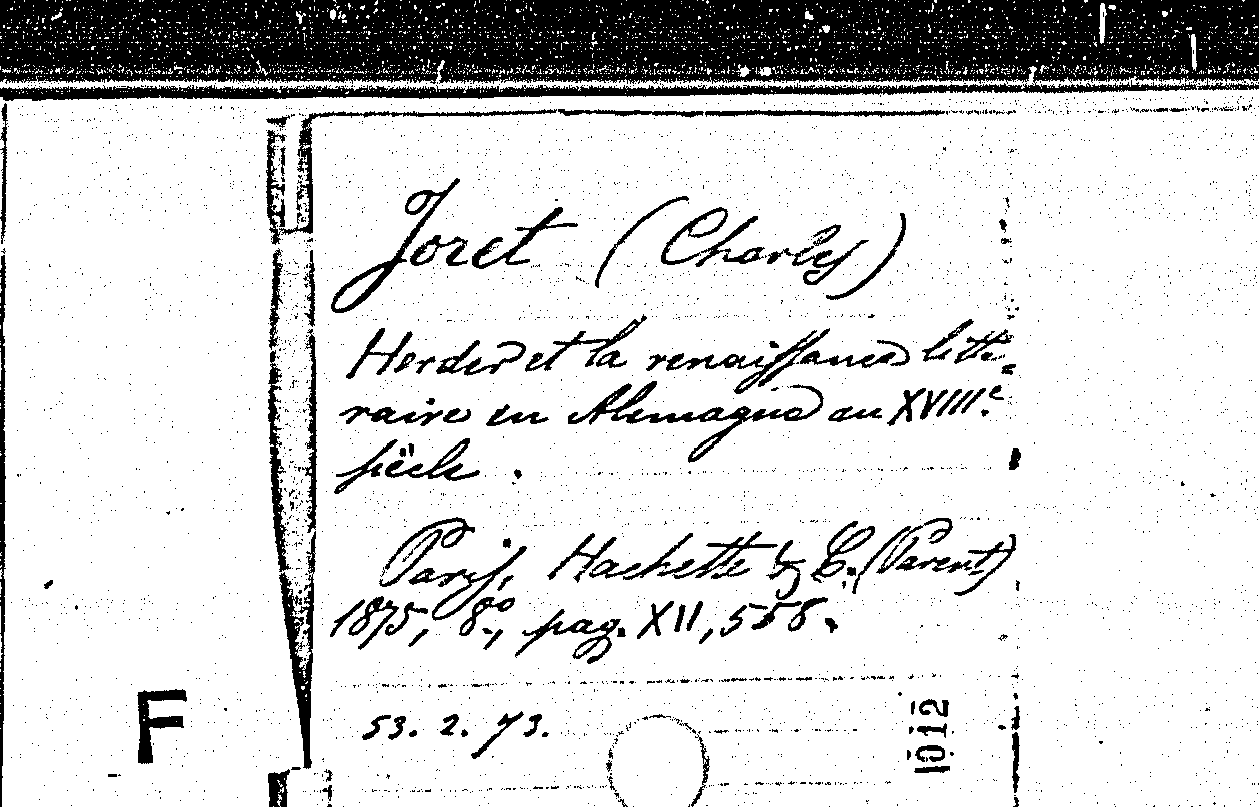 Joret (Charles)
Herder et la renaissance litté-
raire en Alemagne au XVIII.e
siècle.
Paris, Hachette & C. (Parent)
1875, 8.º, pag. XII, 558.
53. 2. 73.
1012
F